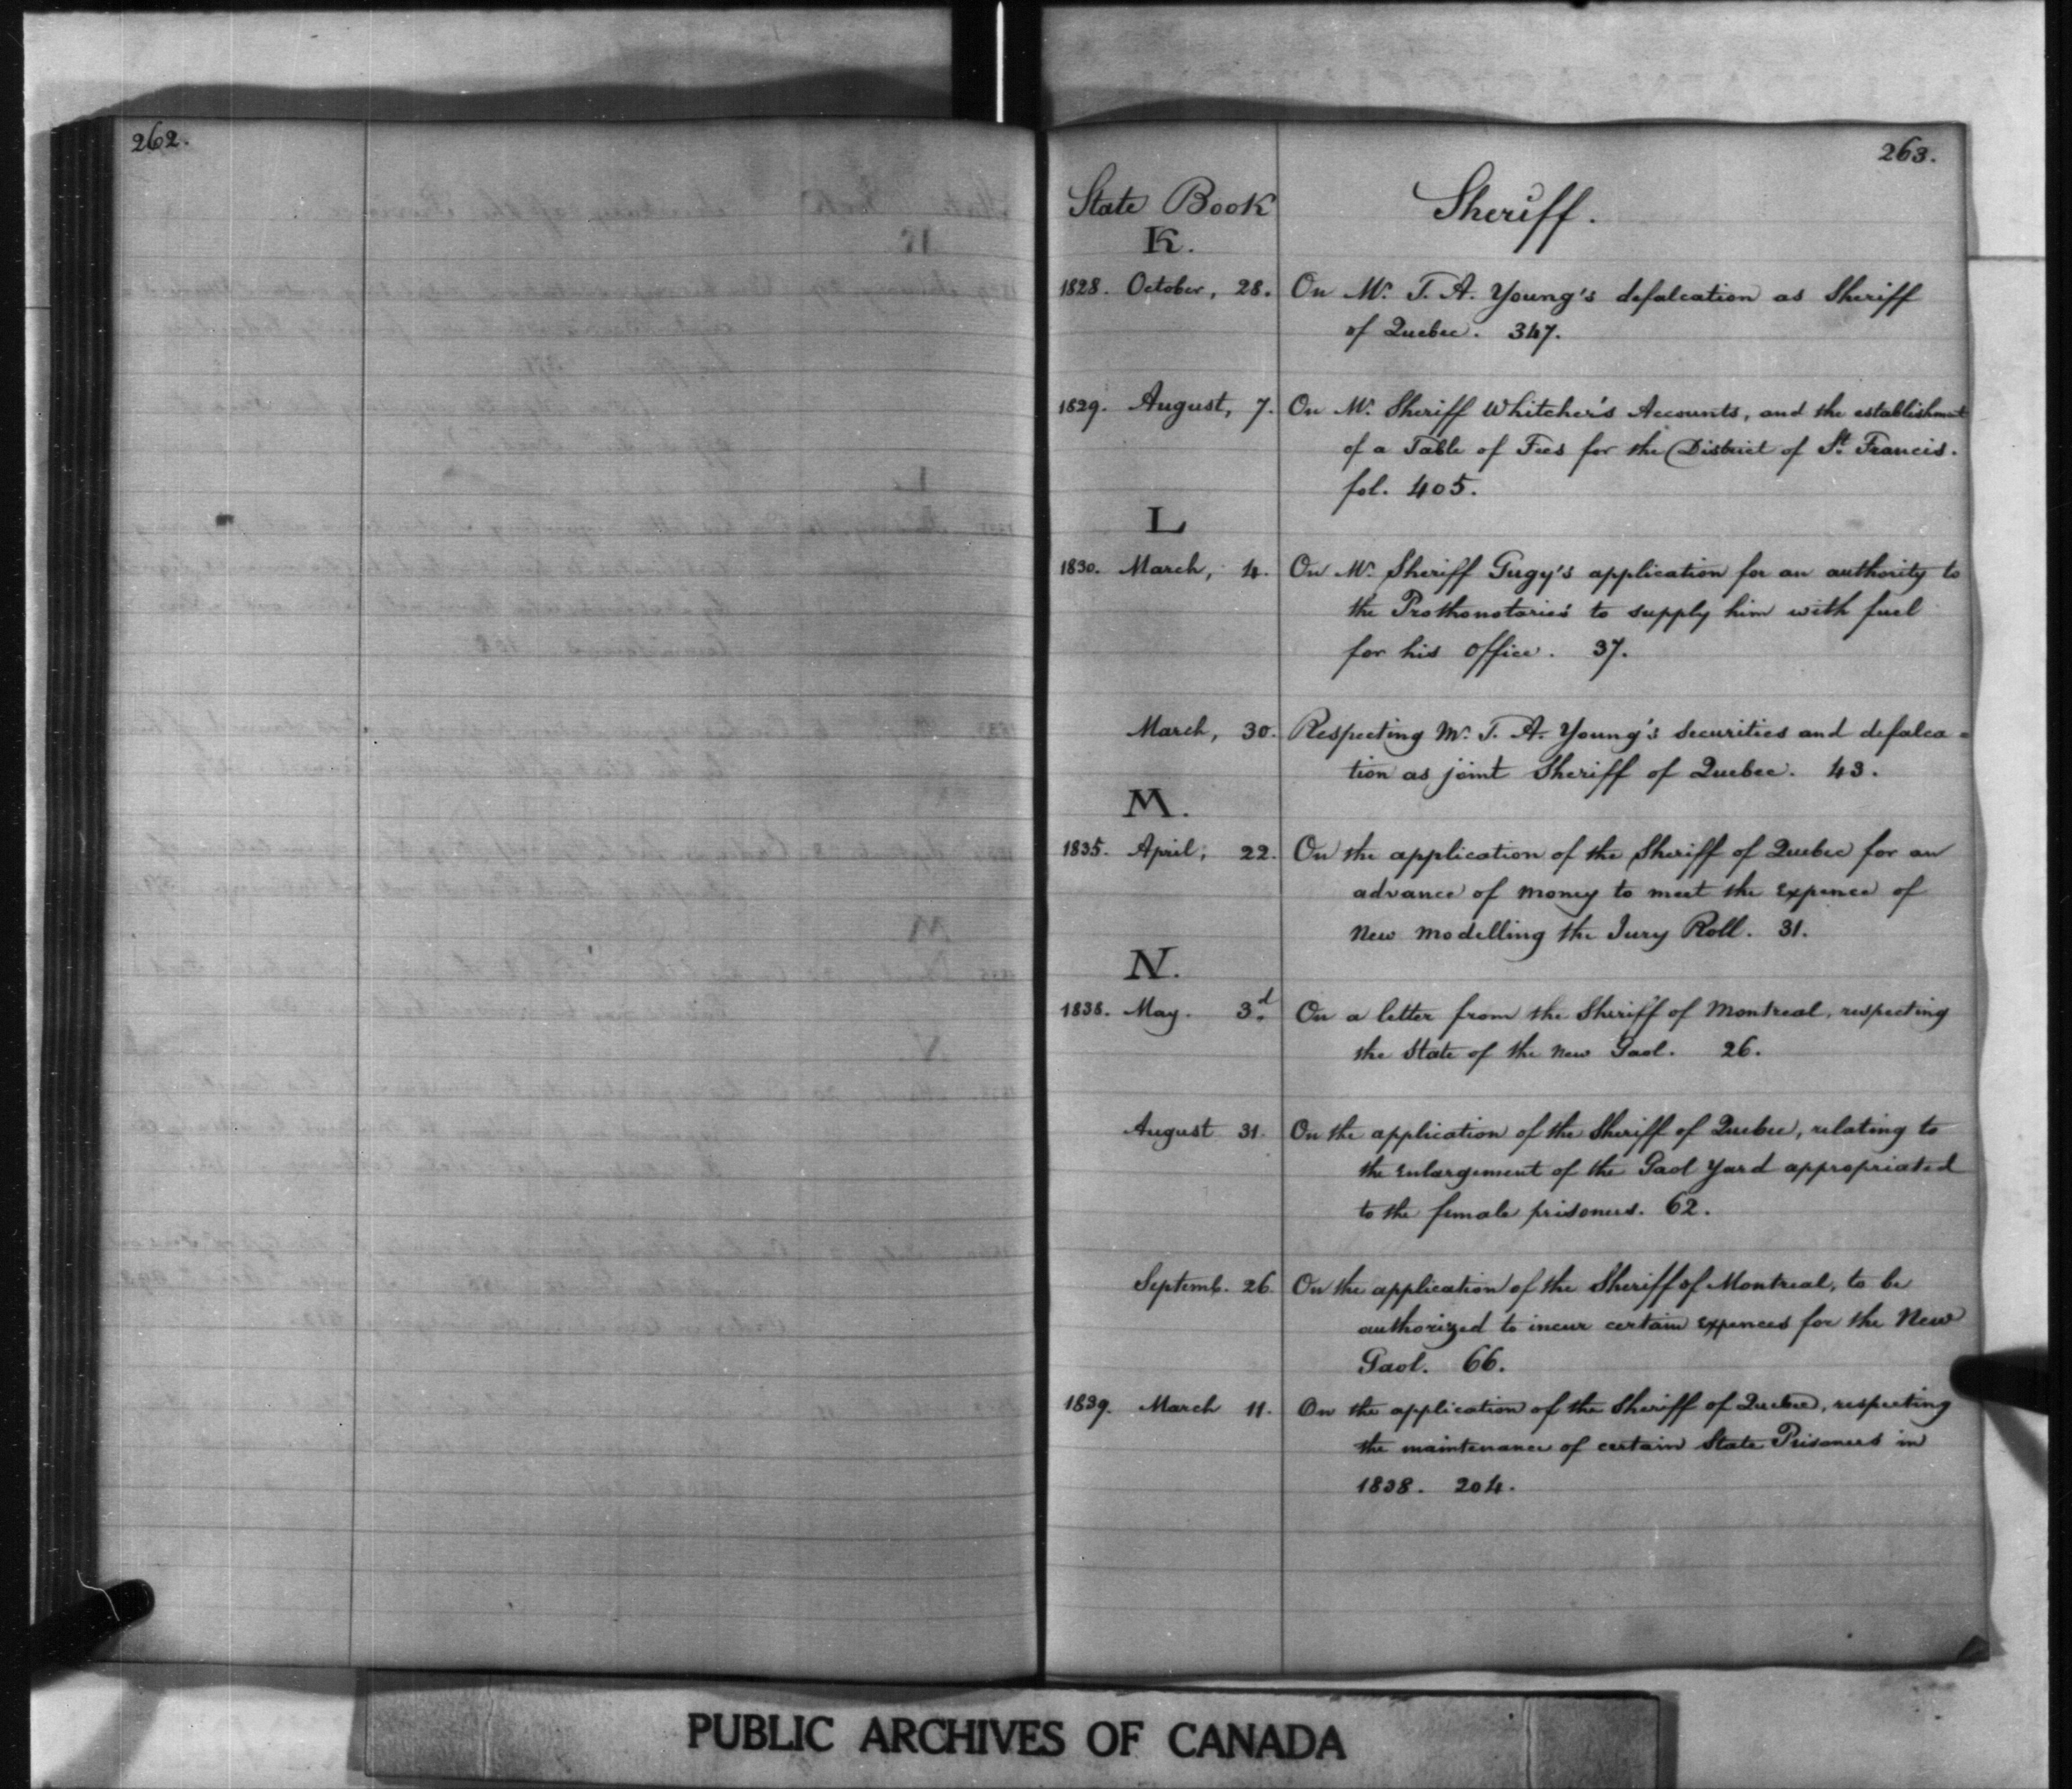 262.
263.
State Book
Sheriff.
K.
1828. October, 28. On Mr. T. A. Young's defalcation as Sheriff
of Quebec. 347.
1829. August, 7. On Mr. Sheriff Whitcher's Accounts, and the establishment
of a Table of Fees for the District of St. Francis.
fol. 405.
L
1830. March, 4. On Mr. Sheriff Gugy's application for an authority to
the Prothonotaries to supply him with fuel
for his office. 37.
March, 30. Respecting Mr. T. A. Young's securities and defalca=
tion as joint Sheriff of Quebec. 43.
M.
1835. April, 22. On the application of the Sheriff of Quebec for an
advance of money to meet the Expence of
New modelling the Jury Roll. 31.
N.
1838. May. 3d. On a letter from the Sheriff of Montreal, respecting
the State of the New Gaol. 26.
August 31. On the application of the Sheriff of Quebec, relating to
the Enlargement of the Gaol Yard appropriated
to the female prisoners. 62.
Septemb. 26. On the application of the Sheriff of Montreal, to be
authorized to incur certain Expences for the New
Gaol. 66.
1839. March 11. On the application of the Sheriff of Quebec, respecting
the maintenance of certain State Prisoners in
1838. 204.
PUBLIC ARCHIVES OF CANADA